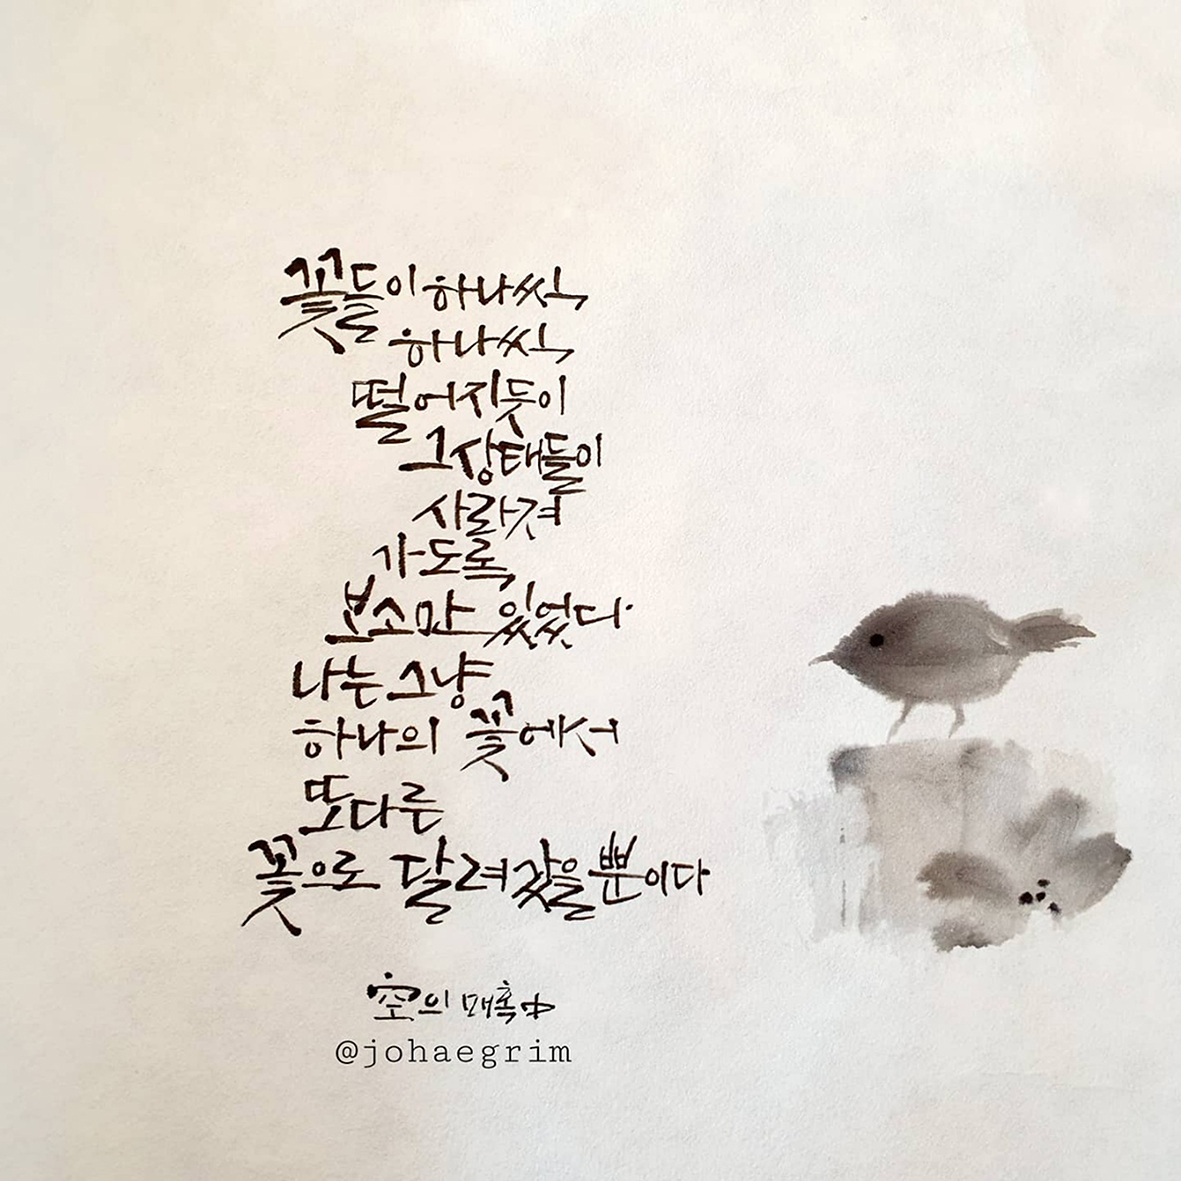 꽃들이 하나씩
하나씩
떨어지듯이
그 상태들이
사라져
가도록
보소만 있었다
나는 그냥
하나의 꽃에서
또다른
꽃으로 달려갔을 뿐이다
空의 매혹 中
@johaegrim